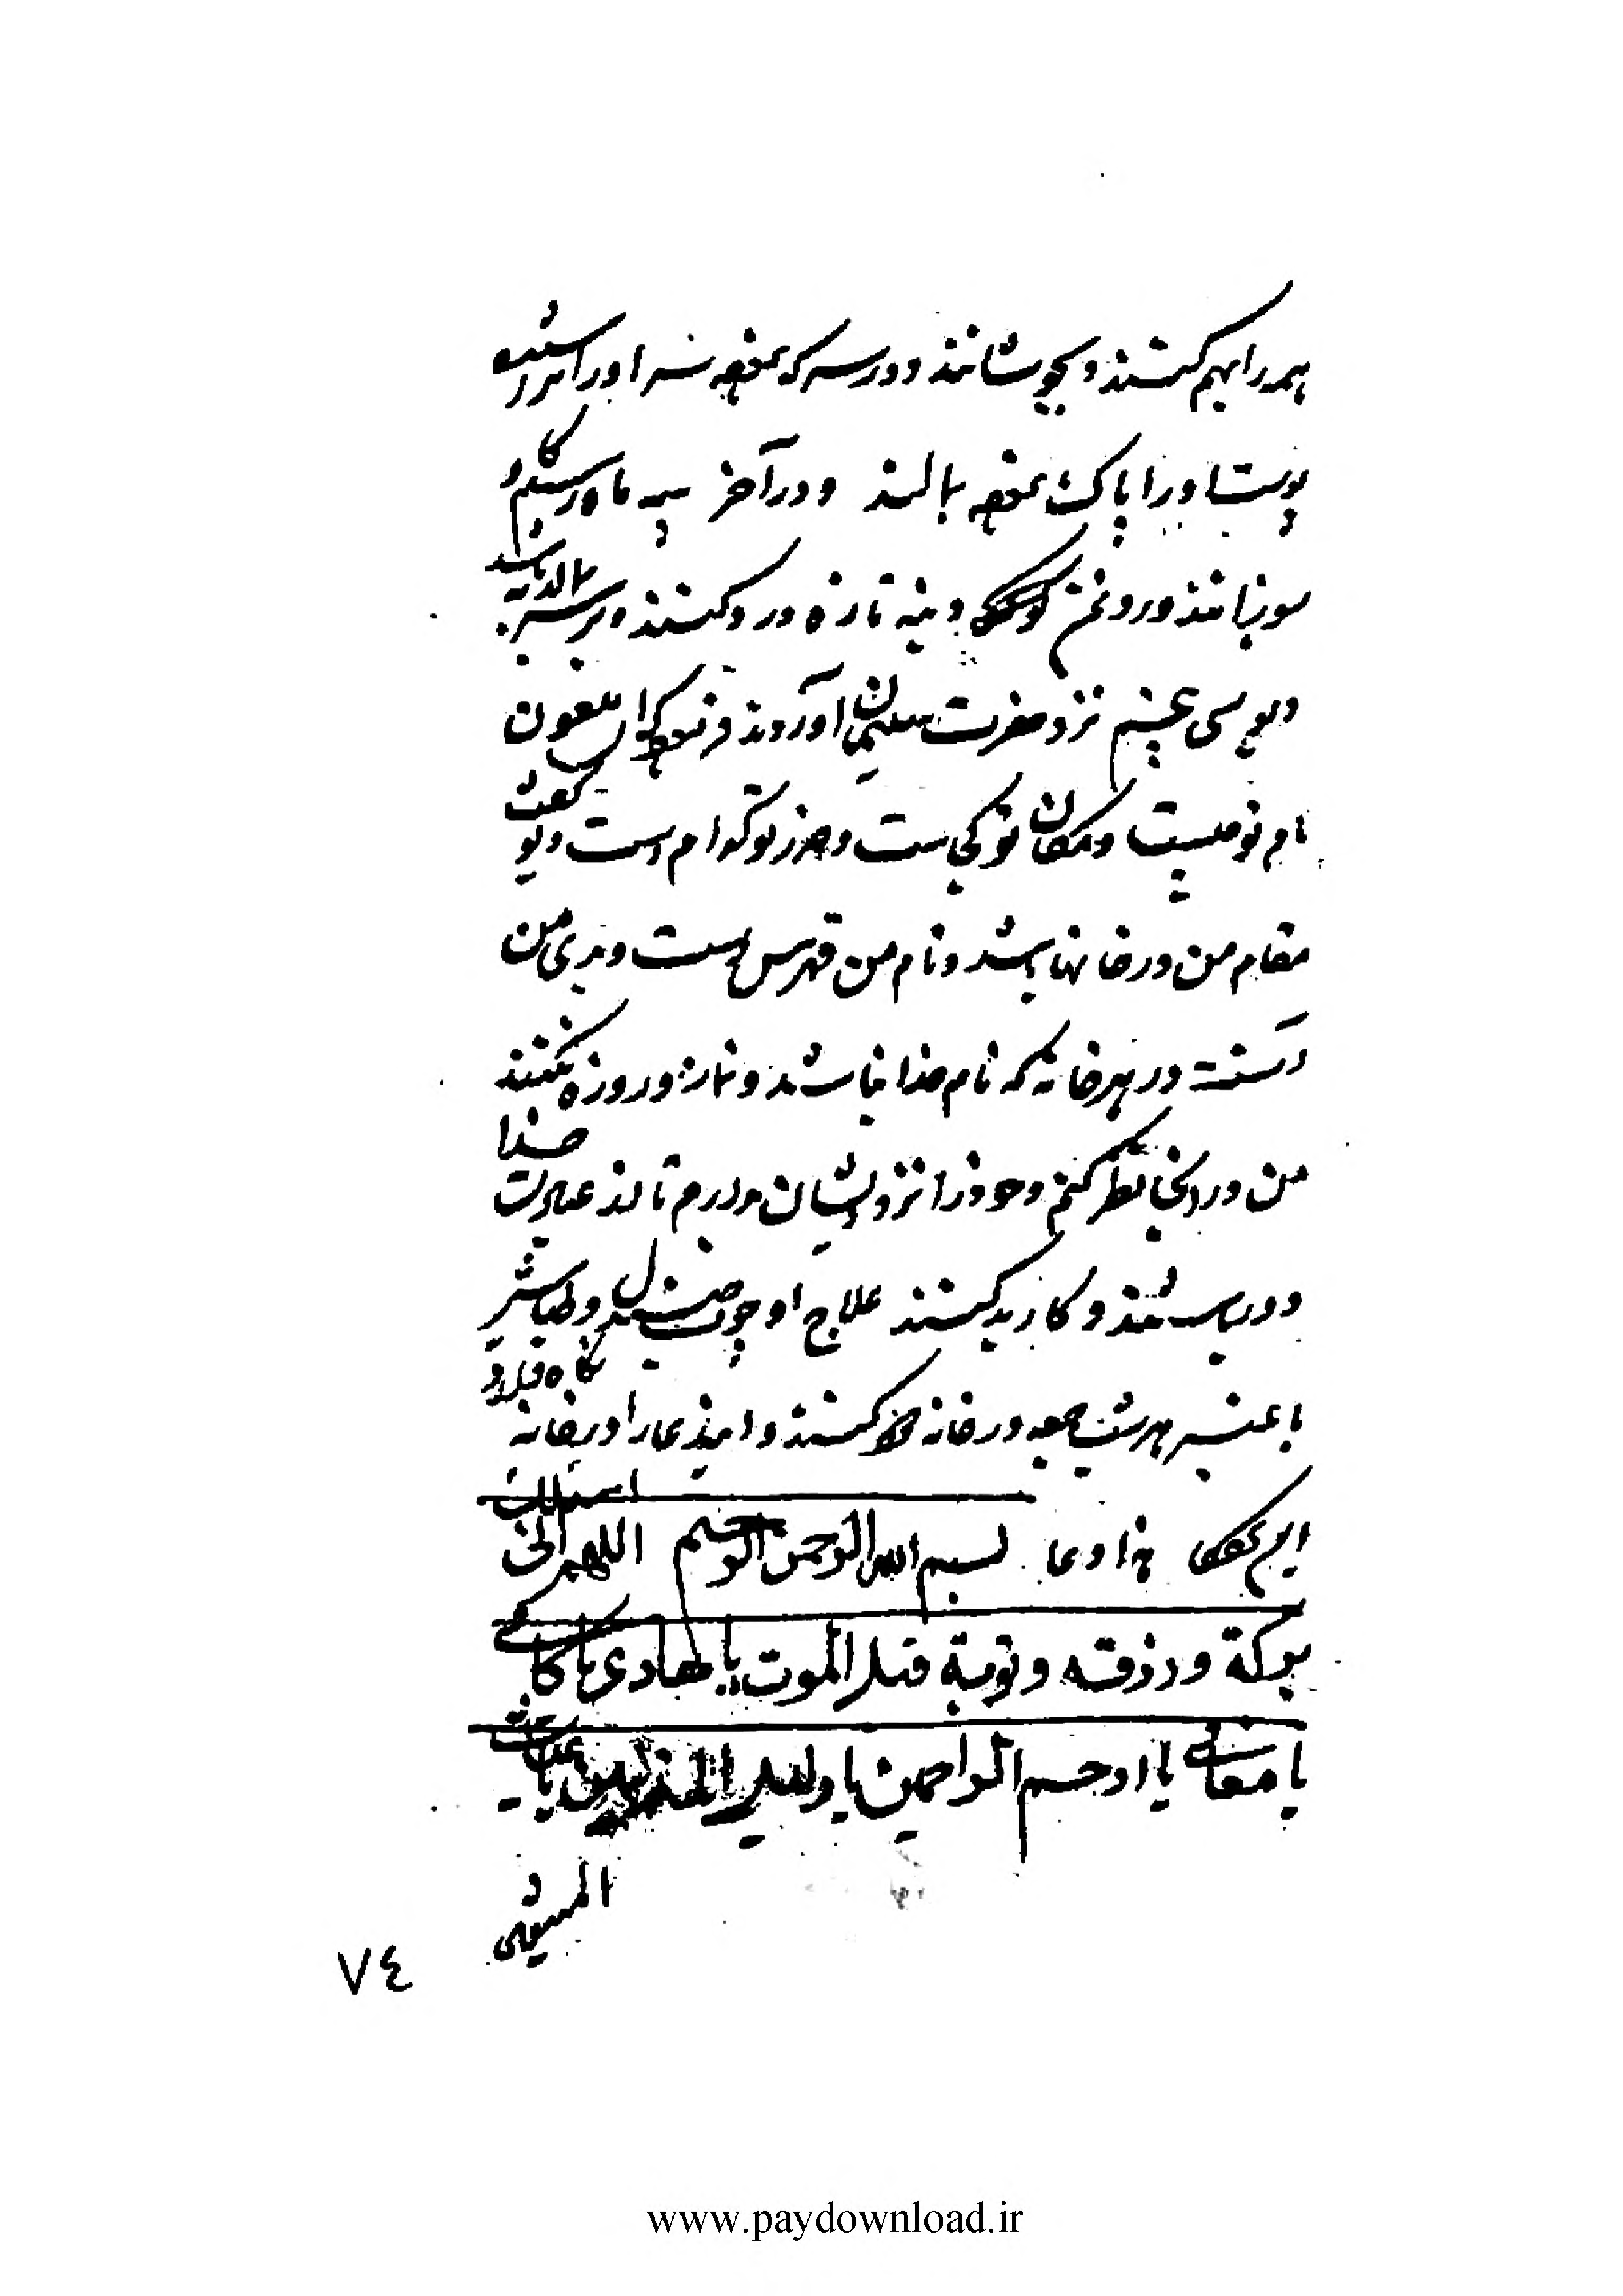 همه را بهم کنند و بجوشانند و در سرکه سر او را تراشیده
پوست او را پاک بمالند و در آخر پیه
بسوزانند و روغن و پنبه تازه در و کنند و بر سر مالد
دیو سی عیشم نزد حضرت سلیمان آوردند فرمود که ای ملعون
نام تو چیست و مکان تو کجاست و حرز تو کدام است دیو گفت
مقام من در خانها باشد و نام من قهرس است و بدی من
آنست در هر خانه که نام خدا نباشد و نماز و روزه نکنند
من در آنجا نظر کنم و خود را نزد ایشان دارم تا از عبادت خدا
دور باشند و کار بد کنند علاج او چوب صندل و طباشیر
با عنبر هر شب جمعه در خانه کنند و این دعا را در خانه نگاه
بسم الله الرحمن الرحیم اللهم انی اسئلک
برکة و رزقه و توبة قبل الموت یا هادی یا کافی
یا معافی یا ارحم الراحمین یا دلیل یا غیاث
٧٤
www.paydownload.ir